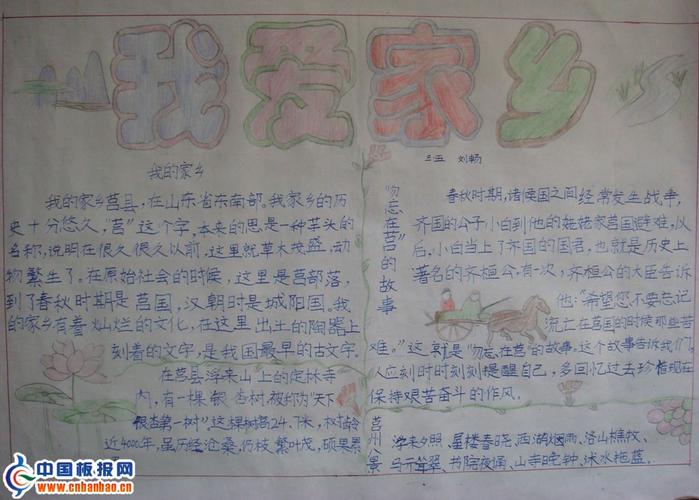 我爱家乡
三五 刘畅
我的家乡
我的家乡莒县，在山东省东南部。我家乡的历
史十分悠久，“莒”这个字，本来的思是一种草头的
名称，说明在很久很久以前，这里就草木茂盛，动
物繁生了。在原始社会的时候，这里是莒部落，
到了春秋时期是莒国，汉朝时是城阳国。我
的家乡有着灿烂的文化，在这里出土的陶器上
刻着的文字，是我国最早的古文字。
在莒县浮来山上的定林寺
内，有一棵银杏树，被称为“天下
银杏第一树”，这棵树高24.7米，树龄
近4000年，虽历经沧桑，仍枝繁叶茂，硕果累
“勿忘在莒”的故事
春秋时期，诸侯国之间经常发生战争，
齐国的公子小白到他的姥姥家莒国避难，以
后，小白当上了齐国的国君，也就是历史上
著名的齐桓公，有一次，齐桓公的大臣告诉
他：“希望您不要忘记
流亡在莒国的时候那些苦
难。”这就是“勿忘在莒”的故事。这个故事告诉我们，
人应刻时时刻刻提醒自己，多回忆过去珍惜现在
保持艰苦奋斗的作风。
莒州八景
浮来夕照、星楼春晓、西湖烟雨、洛山樵牧、
马亓耸翠、书院夜诵、山寺晚钟、沭水拖蓝.
中国板报网
www.cnbanbao.cn